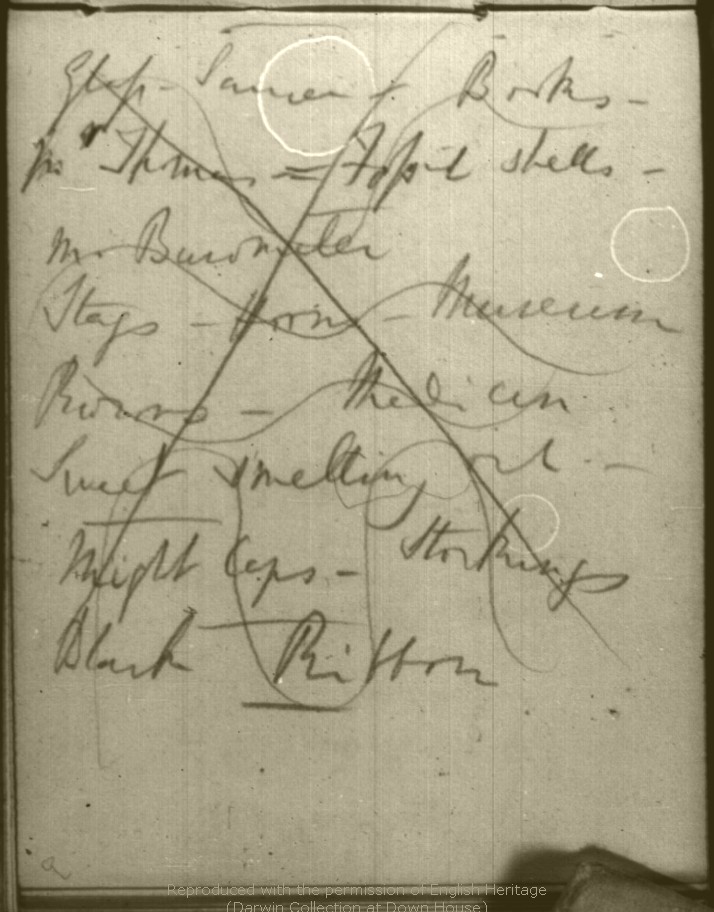 Glass - Saucer + Books -
Mr Thomas = Fossil shells -
Mr Barometer
Stags - Horns - Museum
Rivers - Medicin
Sweet smelling oil -
Night Caps - Stockings
Black Ribbon
Reproduced with the permission of English Heritage
(Darwin Collection at Down House)